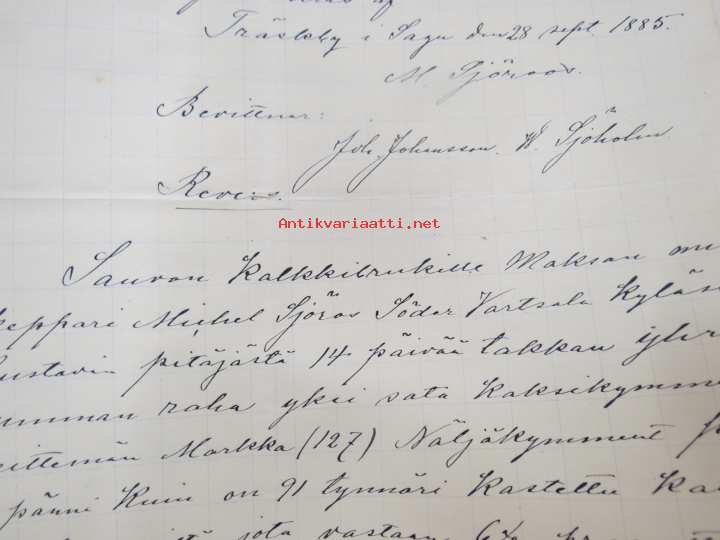 Träskby i Sagu den 28 sept. 1885.
M. Sjöroos.
Bevittnar:
Joh. Johansson. W. Sjöholm.
Revers.
Antikvariaatti.net
Sauvon Kalkkibrukille Maksan
keppari Michel Sjöros Söder Vartsala Kyläs
ustavin pitäjästä 14 päivää takkan yhr
umman raha yksi sata Kaksikymme
eittemän Markka (127) Näljäkymment
pänni Kuin on 91 tynnäri Kastettu Ka
jota vastaan 6%